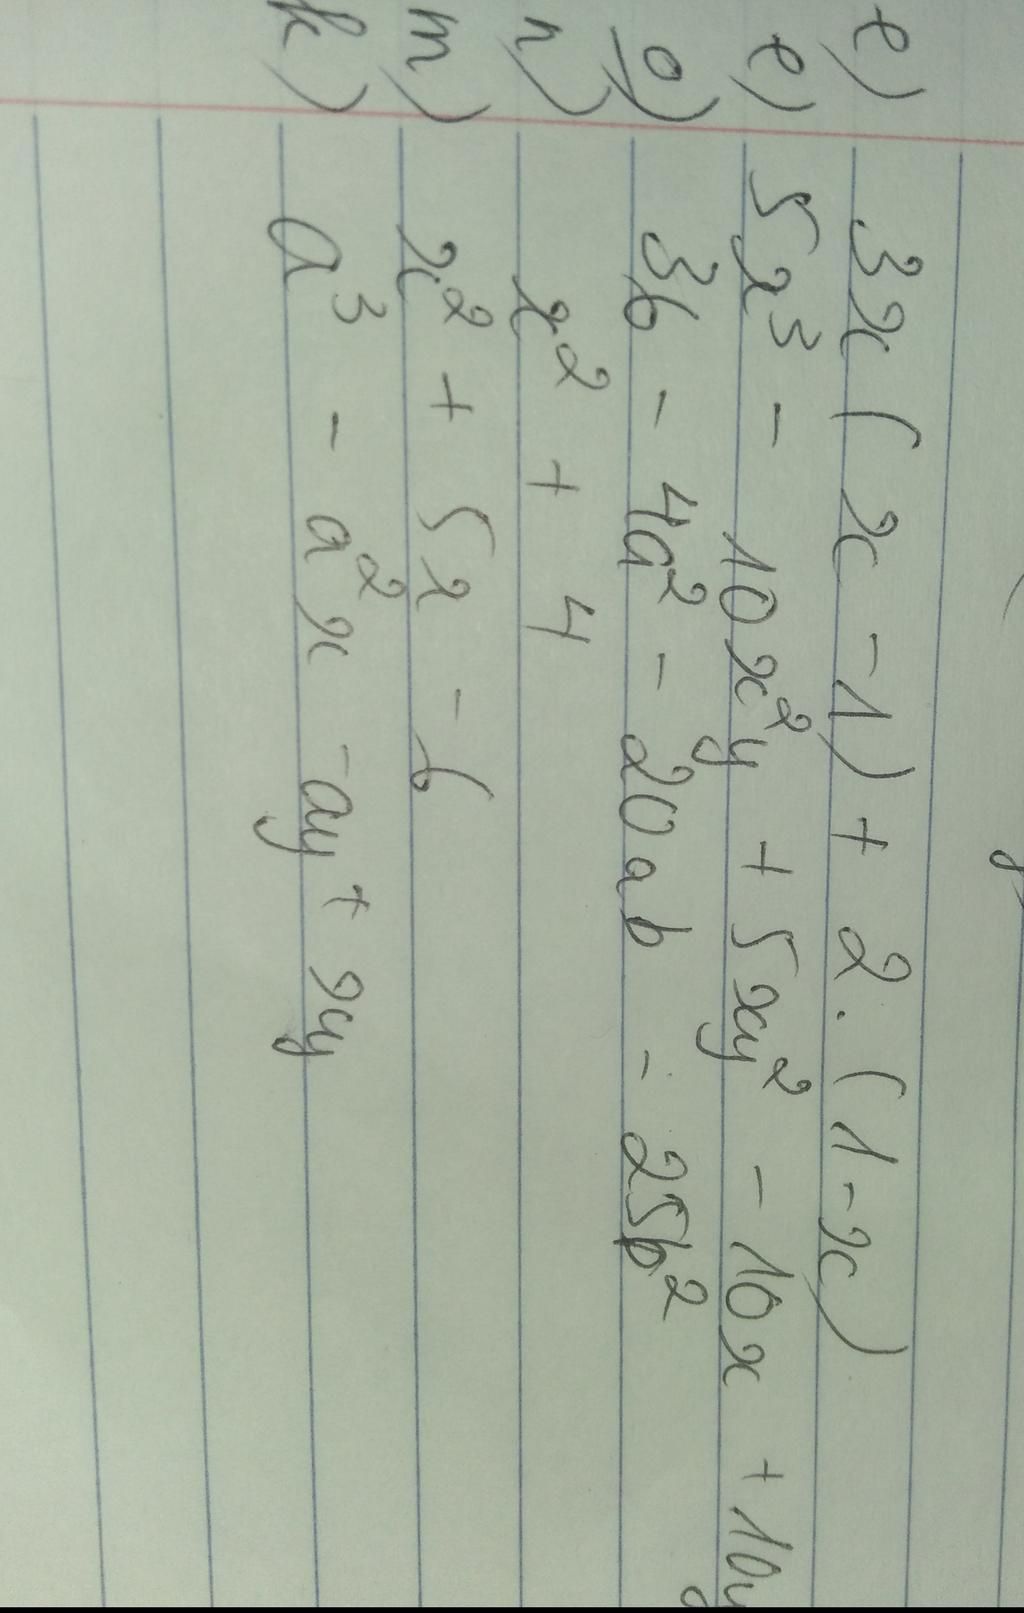 e) 3x(x-1) + 2.(1-x)
e) 5x³ - 10x²y + 5xy² - 10x + 10y
g) 36 - 4a² - 20ab - 25b²
n) x² + 4
m) x² + 5x - 6
k) a³ - a²x - ay + xy